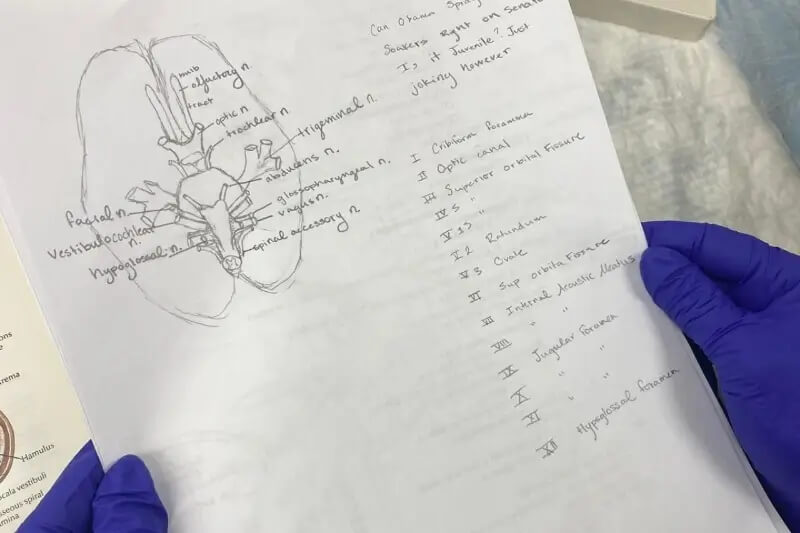 bulb
olfactory n.
tract
optic n
trochlear n.
trigeminal n.
abducens n.
glossopharyngeal n.
vagus n.
spinal accessory n.
facial n.
vestibulocochlear
n.
hypoglossal n.
Can
Soavers Right on senato
Is it Juvenile? Just
joking however
I Cribiform foramina
II Optic canal
III Superior orbital Fissure
IV S "
V 1 "
V 2 Rotundum
V 3 Ovale
VI Sup orbita Fissure
VII Internal Acoustic Meatus
VIII " "
IX Jugular Foramen
X " "
XI " "
XII Hypoglossal foramen
ons
e
rema
Hamulus
cala vestibuli
sseous spiral
mina